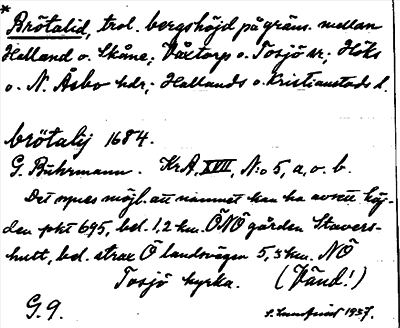 *
Brötalid, trol. bergshöjd på gräns. mellan
Halland o. Skåne; Våxtorp o. Tosjö sr; Höks
o. N. Åsbo hdr; Hallands o. Kristianstads l.
brötalij 1684.
G. Buhrmann. KrA, XVII, N:o 5, a, o. b.
Det synes möjl. att namnet kan ha avsett höj-
den pkt 695, bel. 1,2 km. ÖNÖ gården Stavers-
hult, bel. strax Ö landsvägen 5,5 km. NÖ
Tosjö kyrka. (Vänd!)
G. 9. 1937.